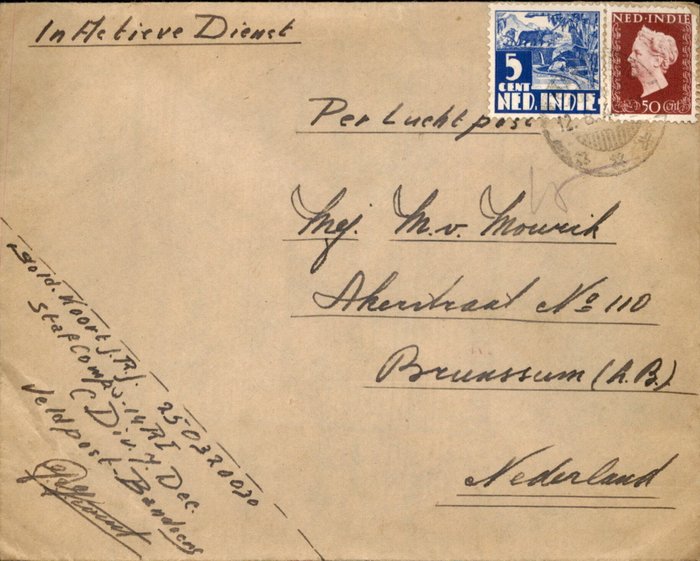 In Actieve Dienst
5
CENT
NED. INDIE
NED-INDIE
50 Ct
Per Luchtpost
12.
Mej. M. v. Mourik
Akerstraat No 110
Brunssum (L.B.)
Nederland
Sold. Koort J.R.J. 250320030
Stafcomp. 3-14 RI
C Div. 7. Dec.
Veldpost-Bandoeng